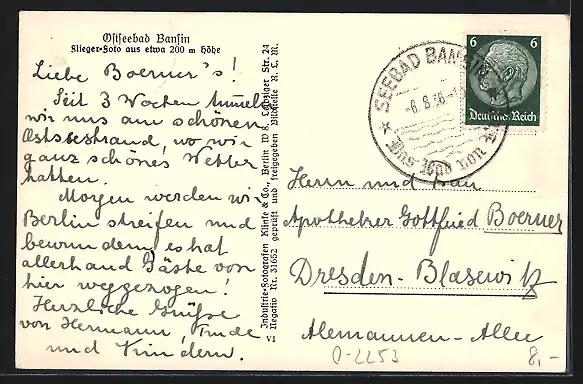 Ostseebad Bansin
Flieger-Foto aus etwa 200 m Höhe
Liebe Boerner's!
Seit 3 Wochen tummeln
wir uns am schönen
Ostseestrand, wo wir
ganz schönes Wetter
hatten.
Morgen werden wir
Berlin streifen und
bewundern, es hat
allerhand Gäste von
hier weggezogen!
Herzliche Grüße
von Hermann, Trude
und Kindern.
Industrie-Fotografen Klinke & Co., Berlin W 8, Leipziger Str. 24
Negativ Nr. 31652 geprüft und freigegeben Bildstelle R.L.M.
VI
SEEBAD BANSIN
-6.8.36-
6 6
Deutsches Reich
Herrn und Frau
Apotheker Gottfried Boerner
Dresden-Blasewitz
Alemannen-Allee
0-2253
8,-